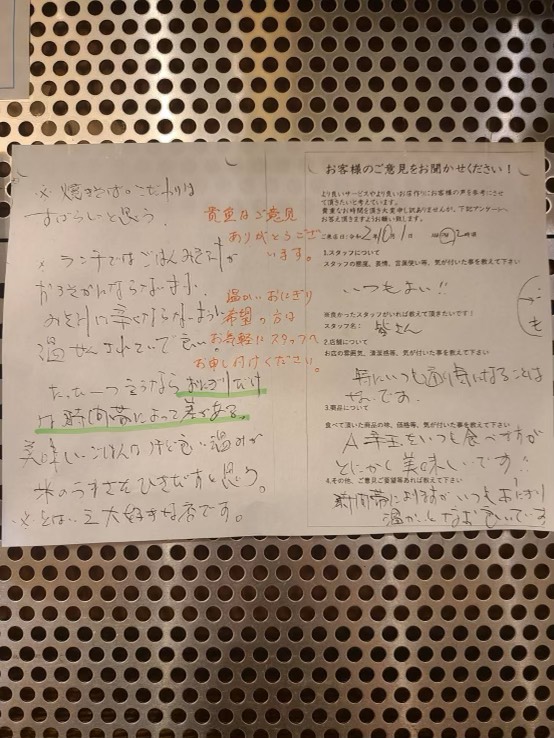 ※ 焼きそばのこだわりは
すばらしいと思う
※ ランチではごはんみそ汁が
おろそかになら
みそ汁
温
たった一つ言うならおにぎりだけ
は時間帯によって差がある。
美味しいごはん 温みが
米のうまさをひきだすと思う。
※とはいえ大好きな店です。
貴重なご意見
ありがとうござ
います。
温かいおにぎり
希望の方は
お気軽にスタッフへ
お申し付けください。
お客様のご意見をお聞かせください!
より良いサービスやより良いお店作りにお客様の声を参考にさせ
て頂きたいと考えています。
貴重なお時間を頂き大変申し訳ありませんが、下記アンケートへ
お答え頂きますようお願い致します。
ご来店日:令和2年10月1日
1.スタッフについて
スタッフの態度、表情、言葉使い等、気が付いた事を教えて下さい
いつもよい!!
※良かったスタッフがいれば教えて頂きたいです!
スタッフ名: 皆さん
2.店舗について
お店の雰囲気、清潔感等、気が付いた事を教えて下さい
特にいつも 気になることは
ないです。
3.商品について
食べて頂いた商品の味、価格等、気が付いた事を教えて下さい
をいつも食べますが
とにかく美味しいです!!
4.その他、ご意見ご要望等あれば教えて下さい
時間帯によりますがいつもおにぎり
温かいとなお良いです